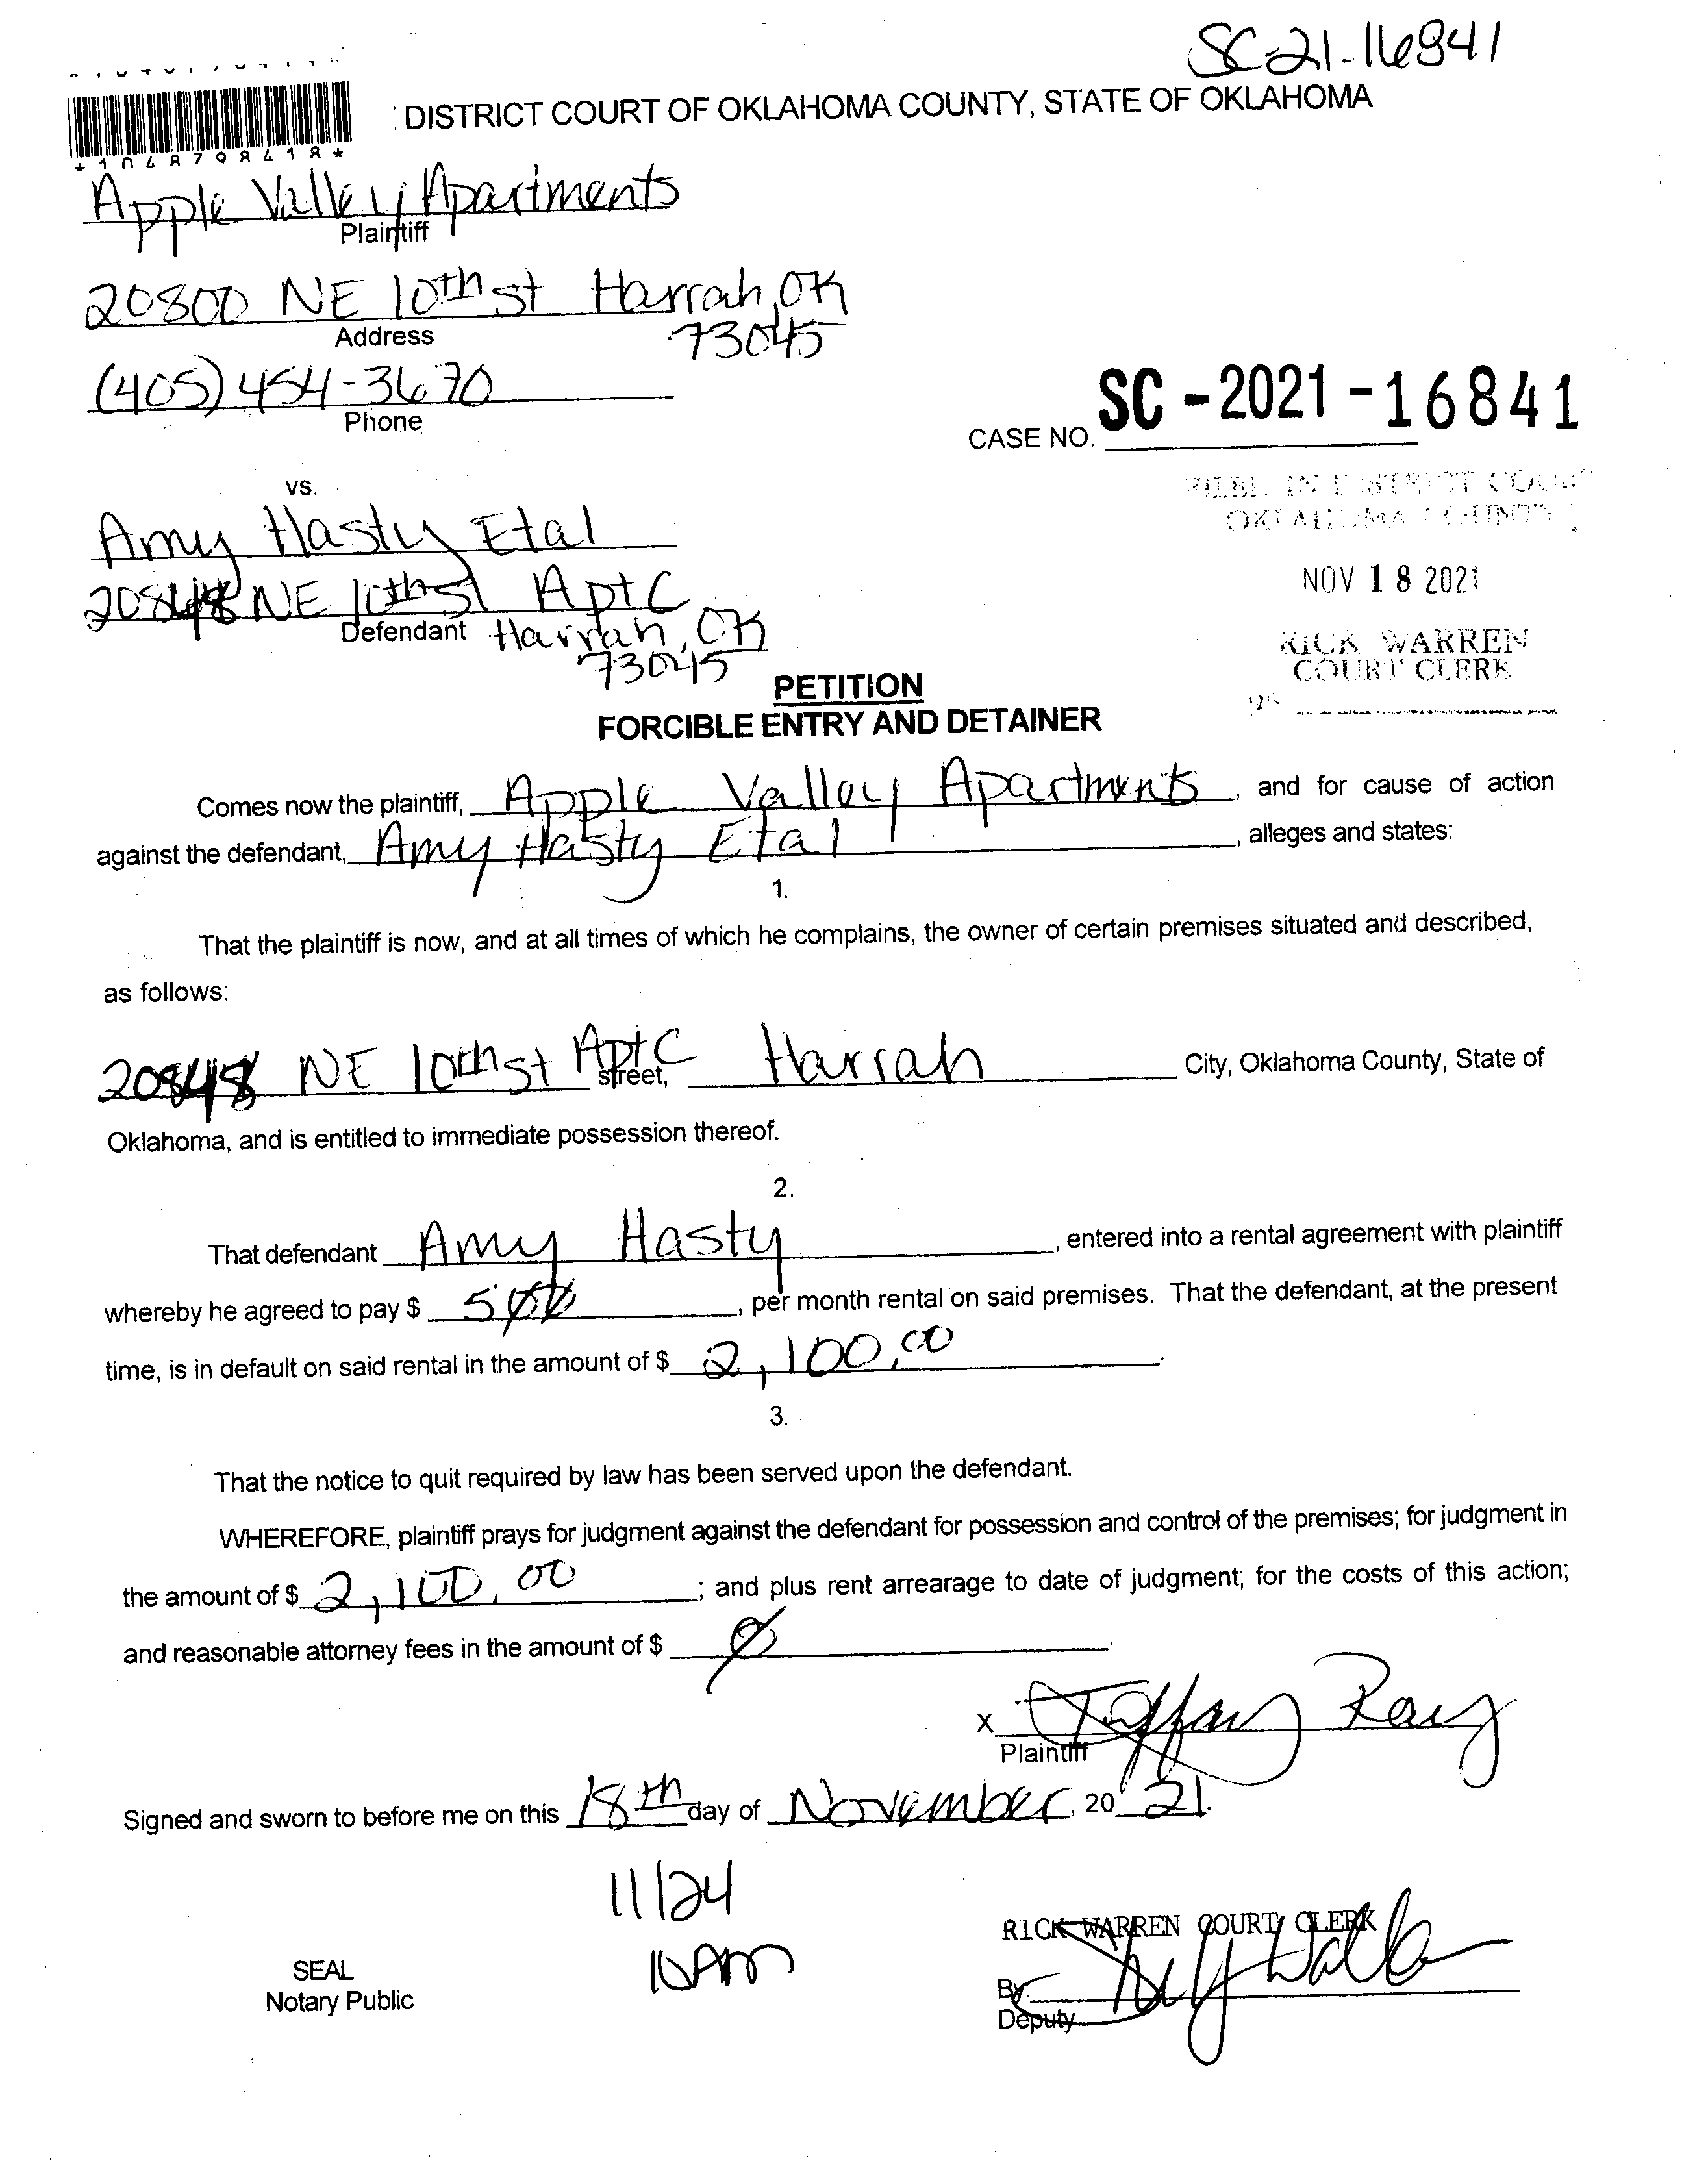 SC-21-16841
DISTRICT COURT OF OKLAHOMA COUNTY, STATE OF OKLAHOMA
Apple Valley Apartments
Plaintiff
20800 NE 10th st Harrah, OK
Address
73045
(405) 454-3670
Phone
CASE NO. SC-2021-16841
vs.
FILED IN DISTRICT COURT
OKLAHOMA COUNTY
Amy Hasty Etal
20848 NE 10th st Apt C
NOV 18 2021
Defendant Harrah, OK
73045
RICK WARREN
COURT CLERK
PETITION
FORCIBLE ENTRY AND DETAINER
Comes now the plaintiff, Apple Valley Apartments, and for cause of action
against the defendant, Amy Hasty Etal, alleges and states:
1.
That the plaintiff is now, and at all times of which he complains, the owner of certain premises situated and described,
as follows:
20848 NE 10th st Apt C street, Harrah City, Oklahoma County, State of
Oklahoma, and is entitled to immediate possession thereof.
2.
That defendant Amy Hasty, entered into a rental agreement with plaintiff
whereby he agreed to pay $ 500, per month rental on said premises. That the defendant, at the present
time, is in default on said rental in the amount of $ 2,100.00.
3.
That the notice to quit required by law has been served upon the defendant.
WHEREFORE, plaintiff prays for judgment against the defendant for possession and control of the premises; for judgment in
the amount of $ 2,100.00; and plus rent arrearage to date of judgment; for the costs of this action;
and reasonable attorney fees in the amount of $ 0.
X Tiffany Ray
Plaintiff
Signed and sworn to before me on this 18th day of November, 20 21.
11/24
10AM
RICK WARREN COURT CLERK
SEAL
Notary Public
By
Deputy